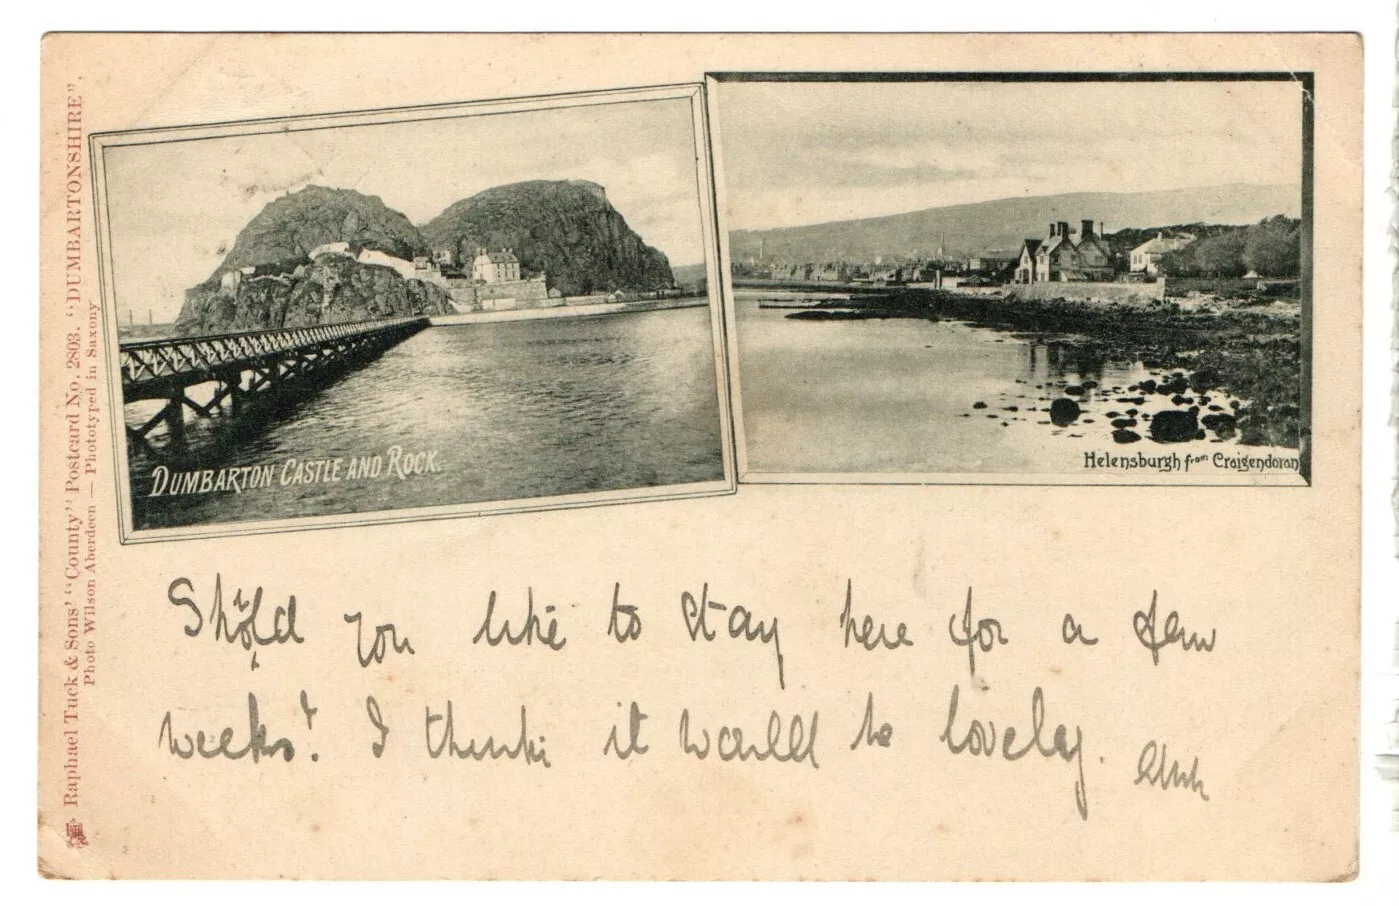 Raphael Tuck & Sons' "County" Postcard No. 2803. "DUMBARTONSHIRE"
Photo Wilson Aberdeen — Phototyped in Saxony
DUMBARTON CASTLE AND ROCK.
Helensburgh from Craigendoran
Sho'ld you like to stay here for a few
weeks! I think it would be lovely.